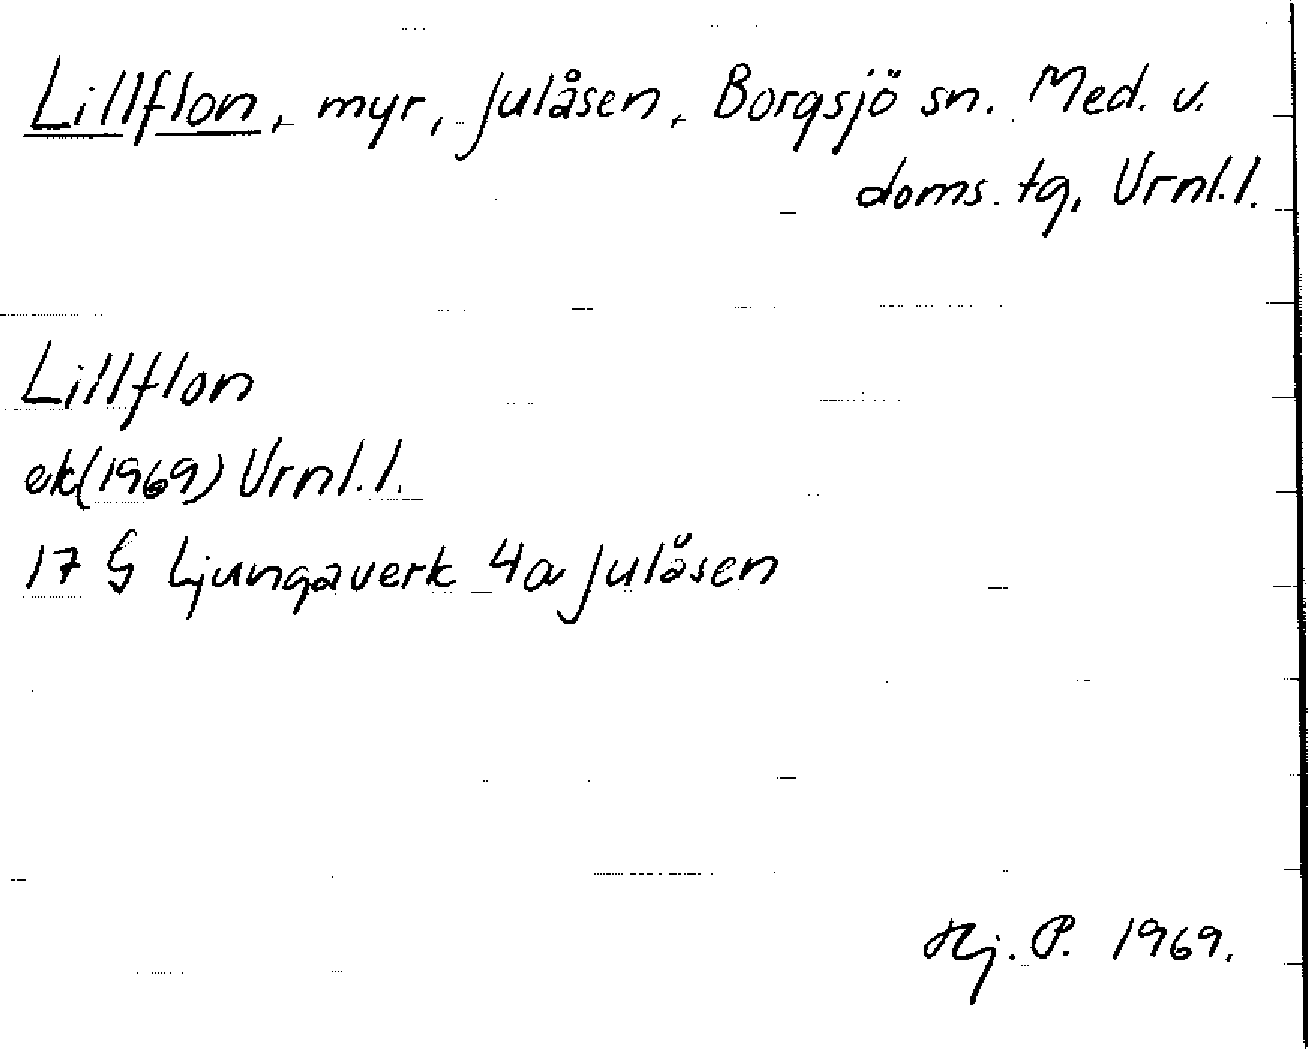 Lillflon, myr, Julåsen, Borgsjö sn. Med. v.
doms. tg, Vrnl.l.
Lillflon
ek(1969) Vrnl.l.
17 G Ljungaverk 4a Julåsen
Hj. P. 1969.